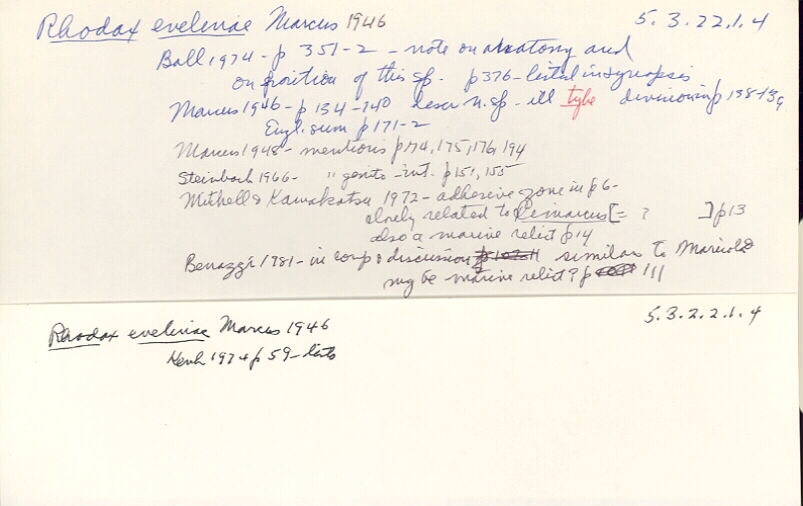 Rhodax evelinae Marcus 1946 5.3.2.2.1.4
Ball 1974 - p 351-2 - note on anatomy and
on position of this sp. p376 - listed in synopsis
Marcus 1946 - p 134-140 descr n. sp - ill type division p 138-139
Engl. sum p 171-2
Marcus 1948 - mentions p174, 175, 176, 194
Steinbach 1966 - " genito-int. p151, 155
Mitchell & Kawakatsu 1972 - adhesive zone in p 6 -
closely related to [= ? ] p13
also a marine relict p14
Benazzi 1981 - in comp & discussion similar to
may be marine relict? p 111
Rhodax evelinae Marcus 1946 5.3.2.2.1.4
1974 p 59 - lists